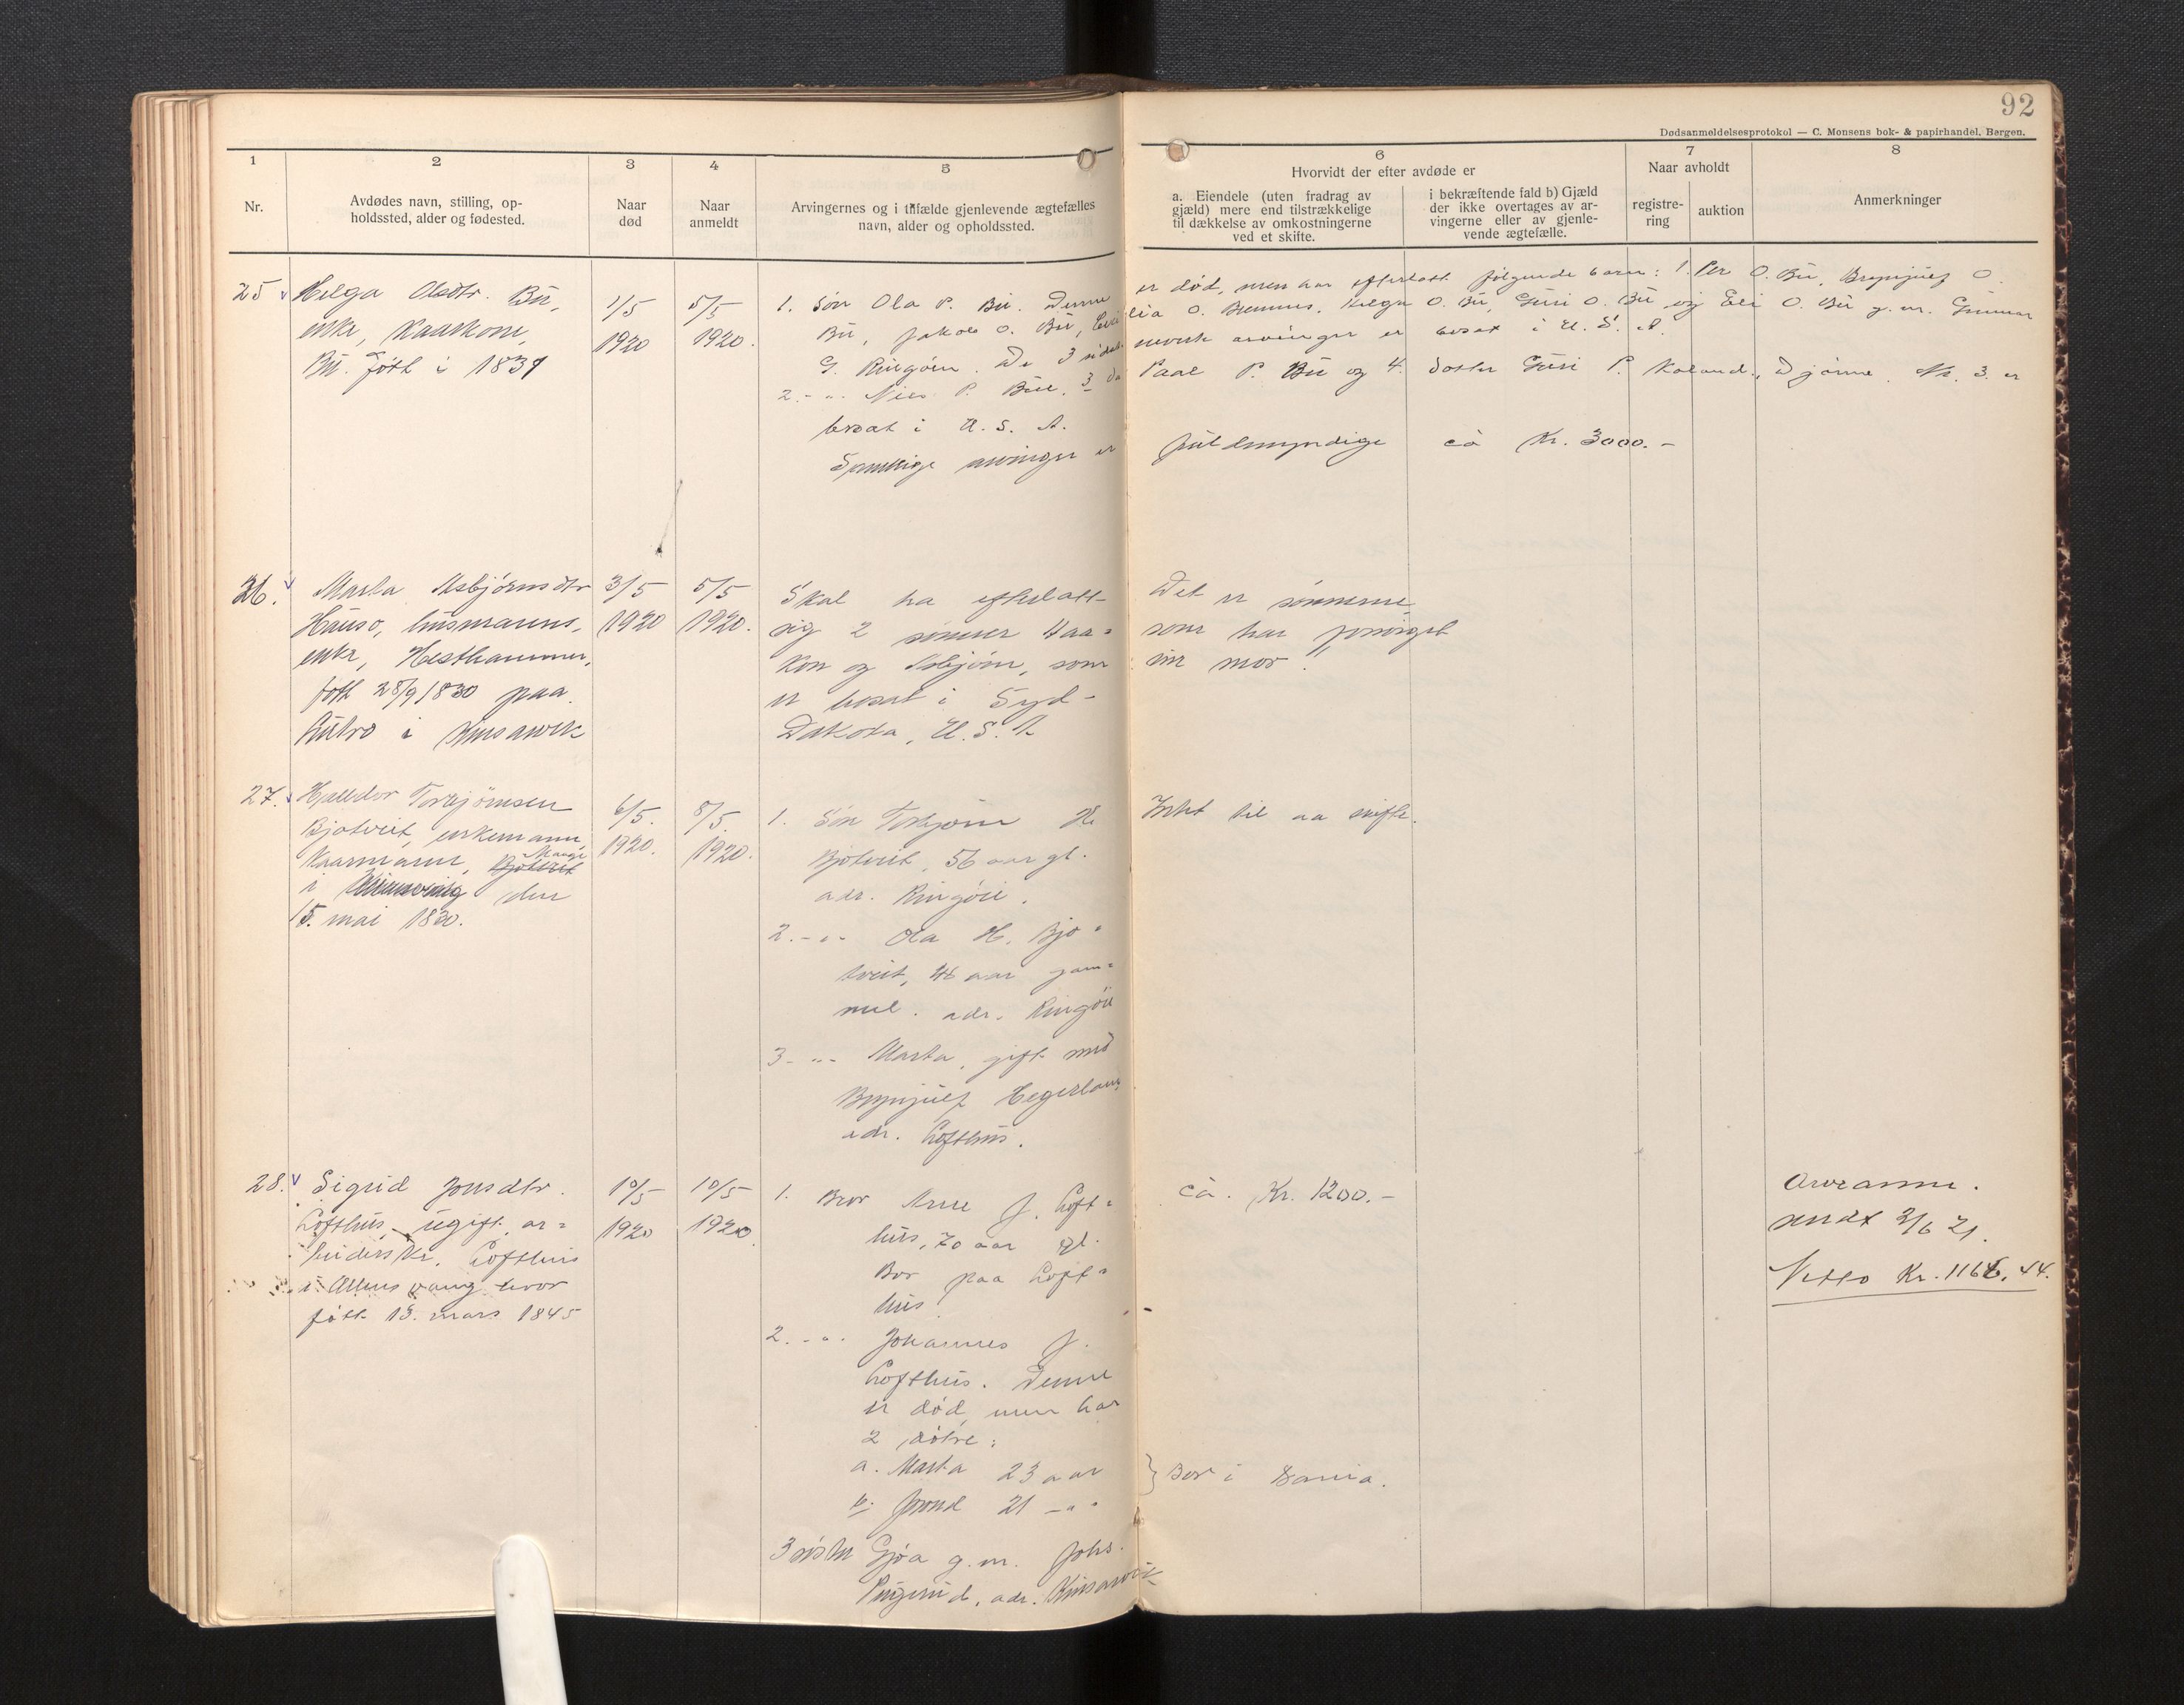 92
Dødsanmeldelsesprotokol — C. Monsens bok- & papirhandel, Bergen.
1 2 3 4 5 6 7 8
Nr.
Avdødes navn, stilling, op-
holdssted, alder og fødested.
Naar
død
Naar
anmeldt
Arvingernes og i tilfælde gjenlevende ægtefælles
navn, alder og opholdssted.
Hvorvidt der efter avdøde er
a. Eiendele (uten fradrag av
gjæld) mere end tilstrækkelige
til dækkelse av omkostningerne
ved et skifte.
i bekræftende fald b) Gjæld
der ikke overtages av ar-
vingerne eller av gjenle-
vende ægtefælle.
Naar avholdt
registre-
ring
auktion
Anmerkninger
25
Helga Olsdtr. Bu,
enke, Kaarkone,
Bu. født i 1839
1/5
1920
5/5
1920.
1. Søn Ola P. Bu. Denne er død, men har efterlatt følgende barn: 1. Per O. Bu, Brynjulf O.
Bu, Jakob O. Bu, O. Bremnes, Helga O. Bu, Guri O. Bu og Eli O. Bu g. m. Gunnar
G. Ringøen. De 3 sidst nevnte arvinger er bosat i U. S. A.
2. - " - Nils P. Bu. 3 Paal P. Bu og 4. datter Guri P. Djønne. Nr. 3 er
bosat i U. S. A.
Samtlige arvinger er fuldmyndige
ca Kr. 3000.-
26.
Marta Asbjørnsdtr
Hauso, husmanns-
enke, Hesthammer,
født 28/9 1830 paa
i Kinsarvik
3/5
1920
5/5
1920.
Skal ha efterlatt
sig 2 sønner Haa=
kon og Asbjørn, som
er bosat i Syd-
Dakota, U. S. A
Det er sønnerne
som har forsørget
sin mor.
27.
Halldor Torbjørnsen
Bjotveit, enkemann,
Kaarmann, Bjotveit
Mauge
i den
15. mai 1830.
6/5.
1920.
8/5.
1920.
1. Søn Torbjørn H.
Bjotveit, 56 aar gl.
adr. Ringøii.
2. - " - Ola H. Bjo=
tveit, 46 aar gam=
mel. adr. Ringøii
3 - " - Marta, gift med
Brynjulf Hegerland
adr. Lofthus.
Intet til aa skifte.
28.
Sigrid Jonsdtr.
Lofthus, ugift ar=
beiderske, Lofthus
i Ullensvang hvor
født 13. mars 1845
10/5
1920
10/5
1920.
1. Bror Arne J. Loft=
hus, 70 aar gl.
Bor paa Loft=
hus.
2. - " - Johannes J.
Lofthus. Denne
er død, men har
2 døtre:
a. Marta 23 aar
b. Jorond 21 - " -
} Bor i Sauia.
3 søster Gjøa g. m. Johs.
Ringerud, adr. Kinsarvik
ca. Kr. 1200.-
Arveanm.
sendt 3/6 21.
Netto Kr. 1166,44.